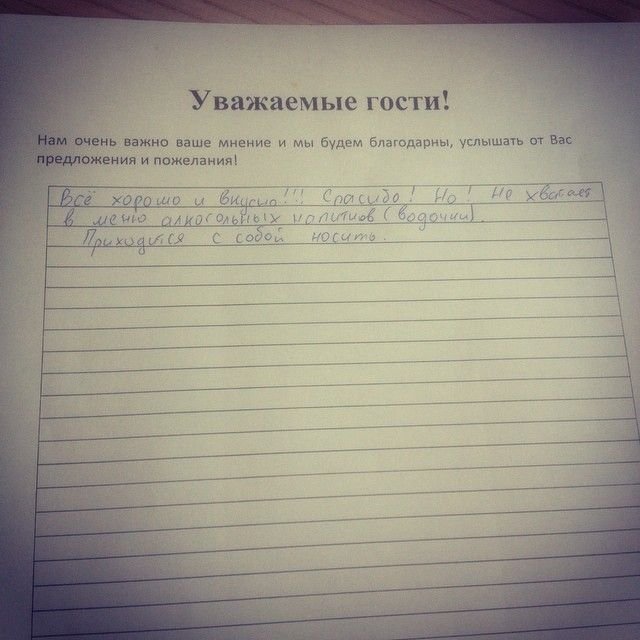 Уважаемые гости!
Нам очень важно ваше мнение и мы будем благодарны, услышать от Вас
предложения и пожелания!
Всё хорошо и вкусно!!! Спасибо! Но! Не хватает
в меню алкогольных напитков (водочки).
Приходится с собой носить.